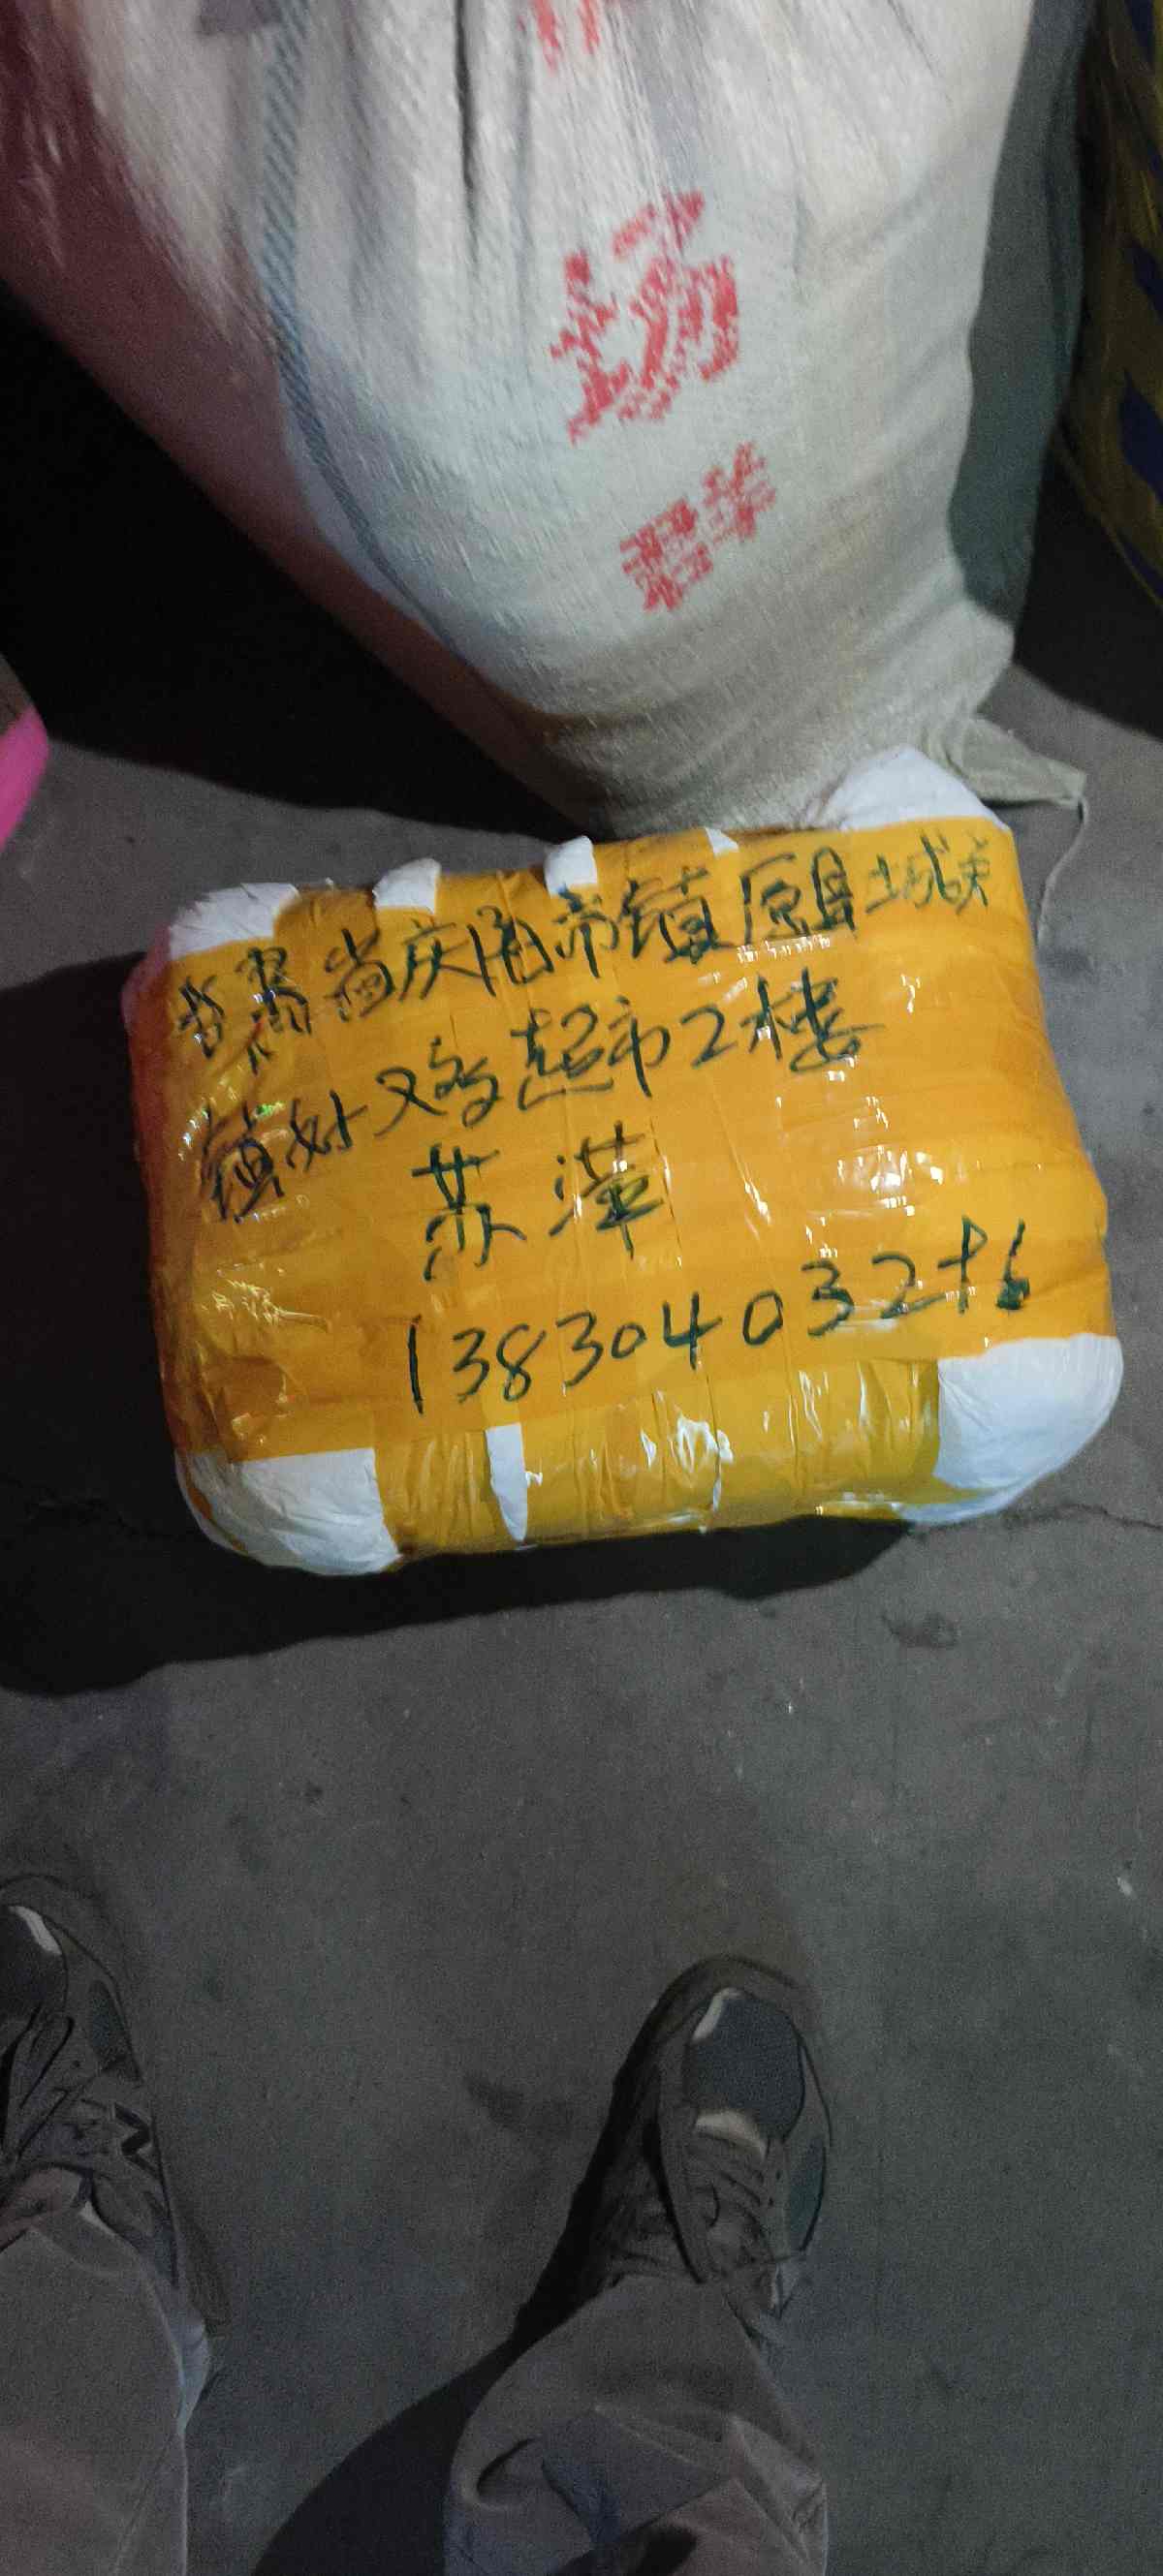 场
群
甘肃省庆阳市镇原县
镇好又多超市2楼
苏
138304032